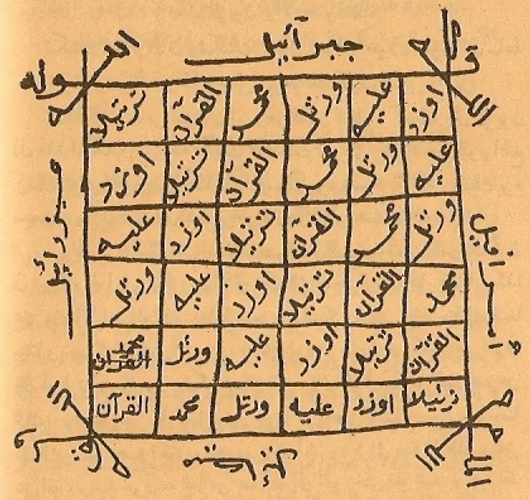 جبرآئيل
الله
وله
اوزد عليه ورتل محمد القرآن ترتيلا
عليه ورتل محمد القرآن ترتيلا اوزد
ورتل محمد القرآن ترتيلا اوزد عليه
محمد القرآن ترتيلا اوزد عليه ورتل
القرآن ترتيلا اوزد عليه ورتل محمد القران
ترتيلا اوزد عليه ورتل محمد القرآن
اسرافيل